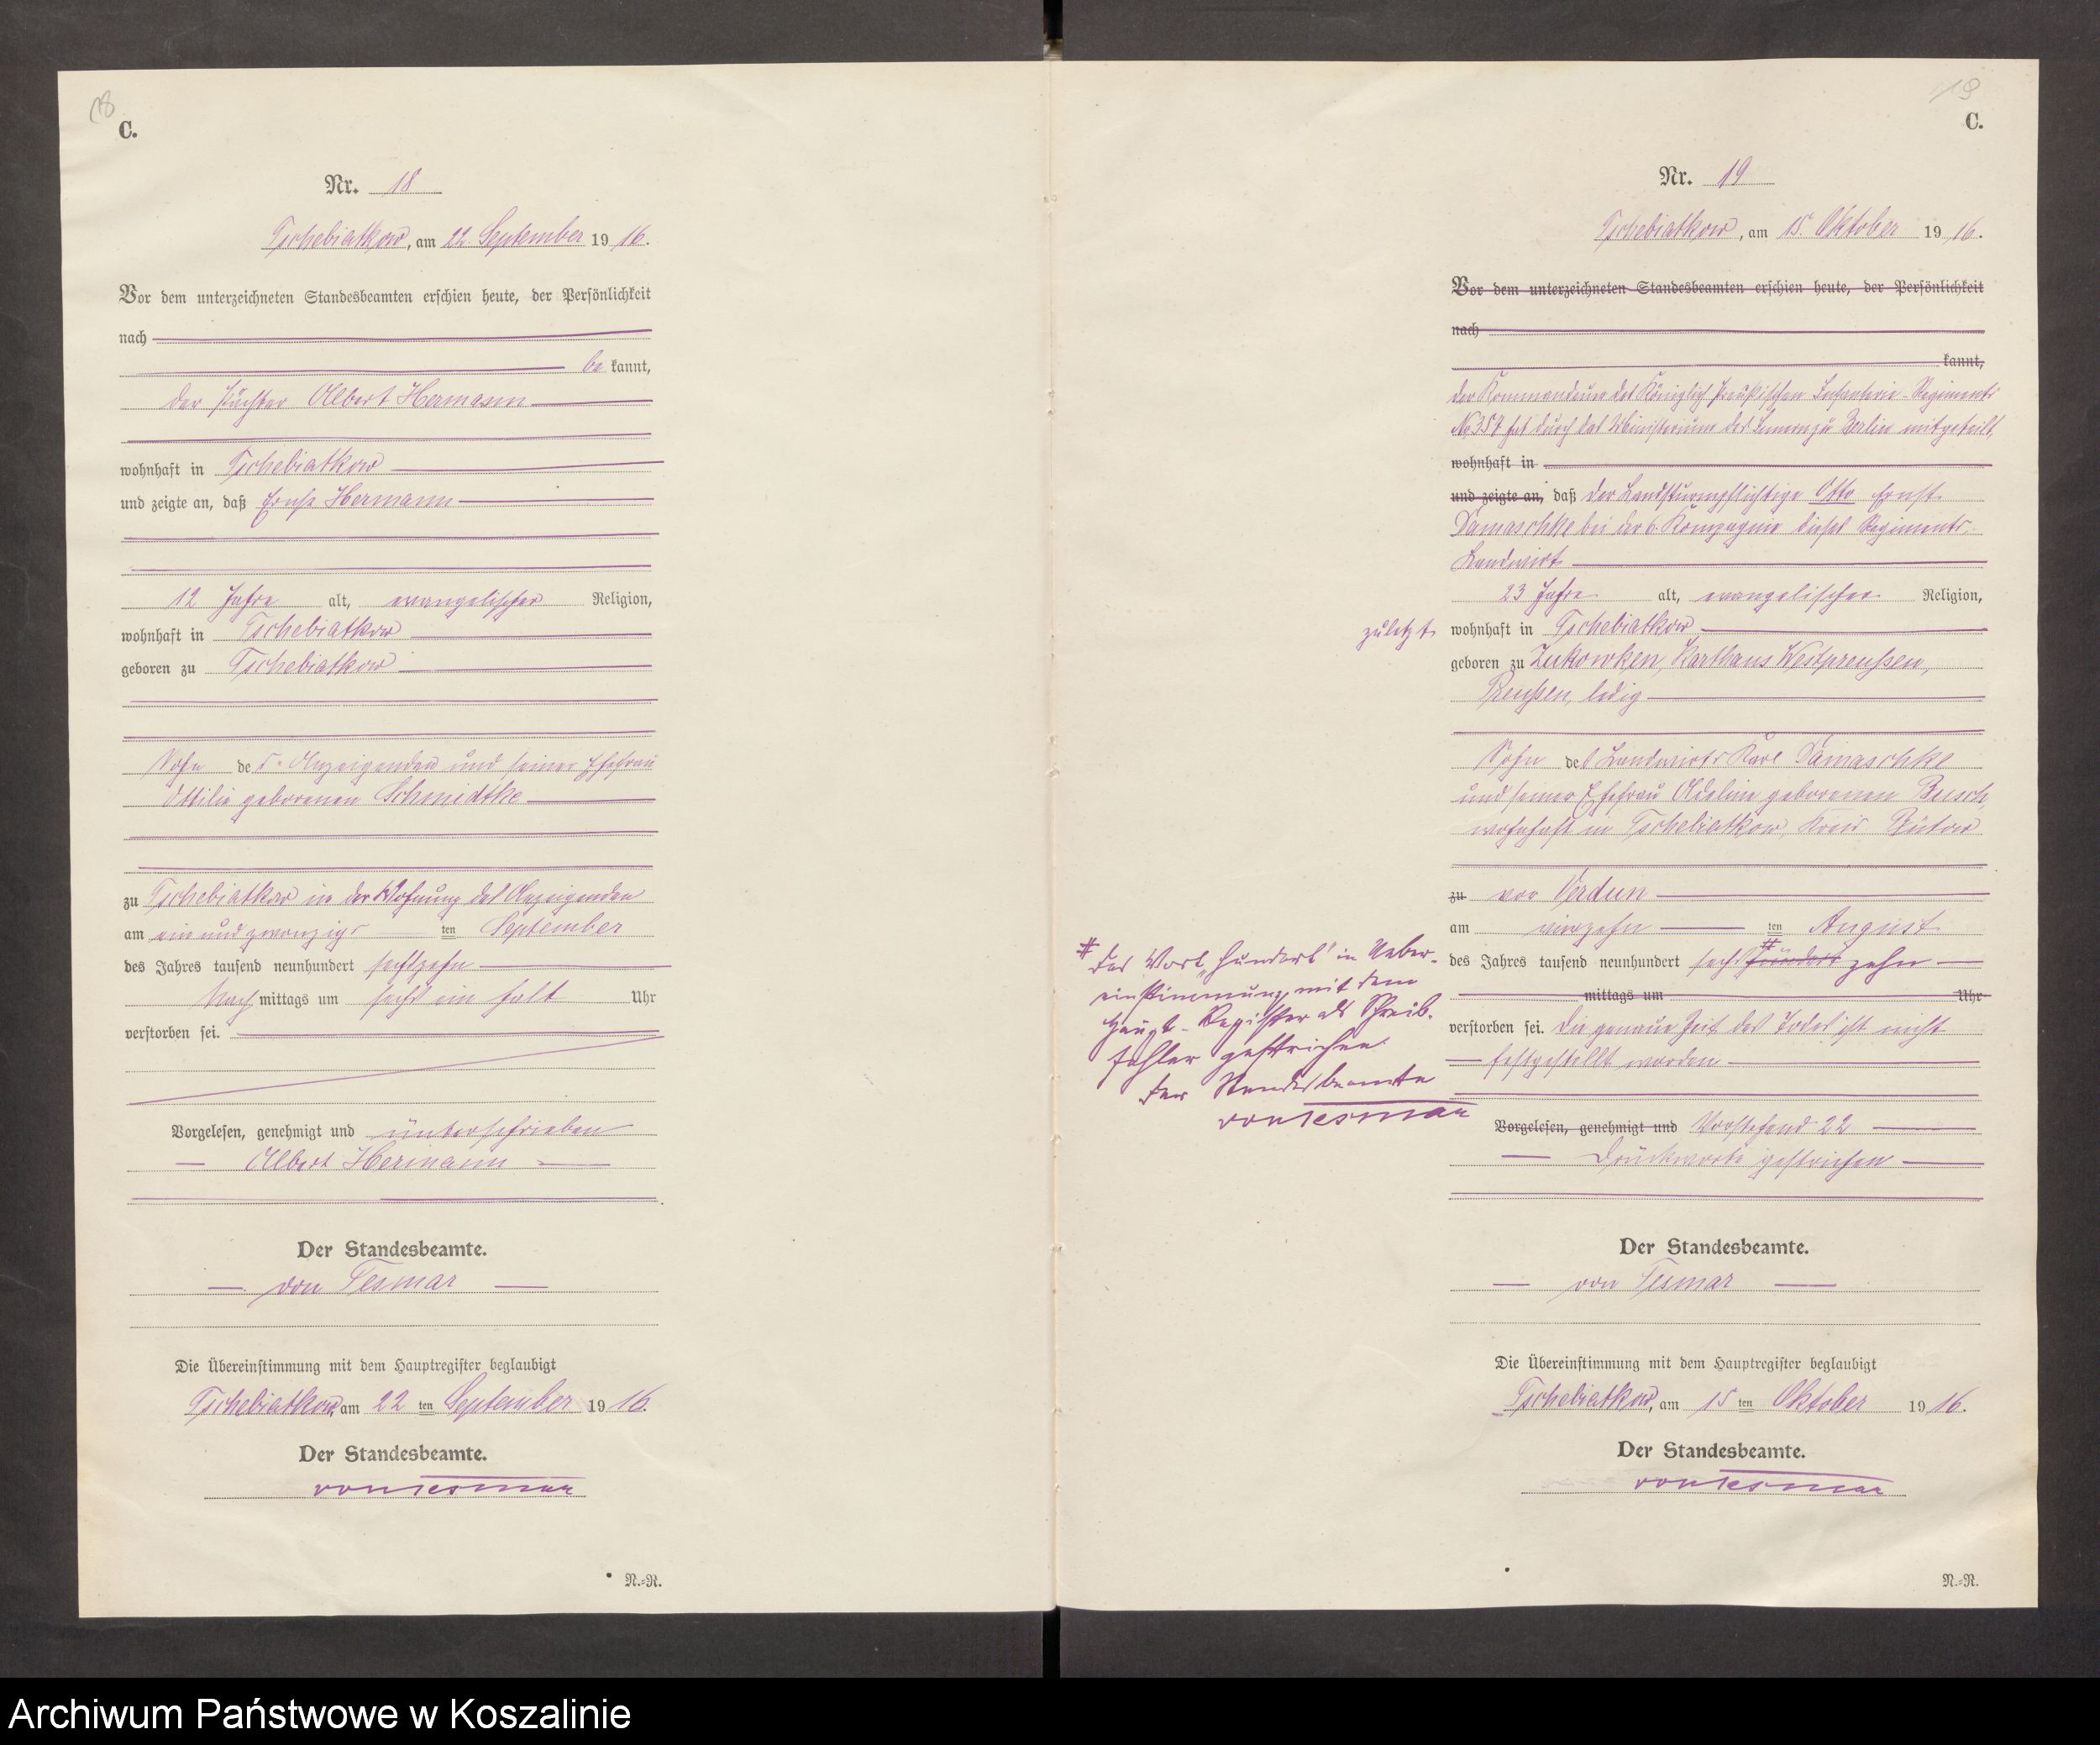 18
C.
Nr. 18
Tschebiatkow, am 22. September 1916.
Vor dem unterzeichneten Standesbeamten erschien heute, der Persönlichkeit
nach
be kannt,
der Pächter Albert Hermann
wohnhaft in Tschebiatkow
und zeigte an, daß Ernst Hermann
12 Jahre alt, evangelischer Religion,
wohnhaft in Tschebiatkow
geboren zu Tschebiatkow
Sohn des Anzeigenden und seiner Ehefrau
Ottilie geborenen Schmidtke
zu Tschebiatkow in der Wohnung des Anzeigenden
am ein und zwanzigsten September
des Jahres tausend neunhundert sechszehn
Nachmittags um sechs ein halb Uhr
verstorben sei.
Vorgelesen, genehmigt und unterschrieben
Albert Hermann
Der Standesbeamte.
von Tesmar
Die Übereinstimmung mit dem Hauptregister beglaubigt
Tschebiatkow, am 22 ten September 1916.
Der Standesbeamte.
von Tesmar
N.-R.
19
C.
Nr. 19
Tschebiatkow, am 15. Oktober 1916.
Vor dem unterzeichneten Standesbeamten erschien heute, der Persönlichkeit
nach
kannt,
Der Kommandeur des Königlich Preußischen Infanterie-Regiments
No 357 hat durch das Ministerium des Innern zu Berlin mitgeteilt,
wohnhaft in
und zeigte an, daß der Landsturmpflichtige Otto Ernst
Damaschke bei der 6. Kompagnie dieses Regiments,
Landwirt
23 Jahre alt, evangelischer Religion,
zuletzt wohnhaft in Tschebiatkow
geboren zu Zukowken, Karthaus Westpreußen,
Preußen, ledig
Sohn des Landwirts Karl Damaschke
und seiner Ehefrau Adeline geborenen Busch,
wohnhaft in Tschebiatkow, Kreis Bütow
zu vor Verdun
am vierzehnten August
des Jahres tausend neunhundert sechs # hundert zehn
mittags um Uhr
verstorben sei. Die genaue Zeit des Todes ist nicht
festgestellt worden
# Das Wort "hundert" in Ueber-
einstimmung mit dem
Haupt-Register als Schreib-
fehler gestrichen.
Der Standesbeamte
von Tesmar
Vorgelesen, genehmigt und Vorstehend 22
Druckworte gestrichen
Der Standesbeamte.
von Tesmar
Die Übereinstimmung mit dem Hauptregister beglaubigt
Tschebiatkow, am 15 ten Oktober 1916.
Der Standesbeamte.
von Tesmar
N.-R.
Archiwum Państwowe w Koszalinie